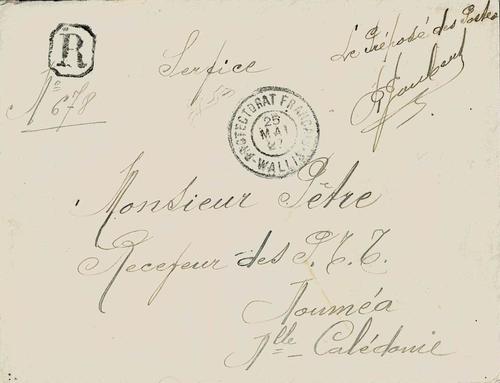 R
N° 678
Service
Le Préposé des Postes
PROTECTORAT FRANÇAIS
25
MAI
WALLIS
Monsieur Pètre
Receveur des P.T.T.
Nouméa
Nlle-Calédonie